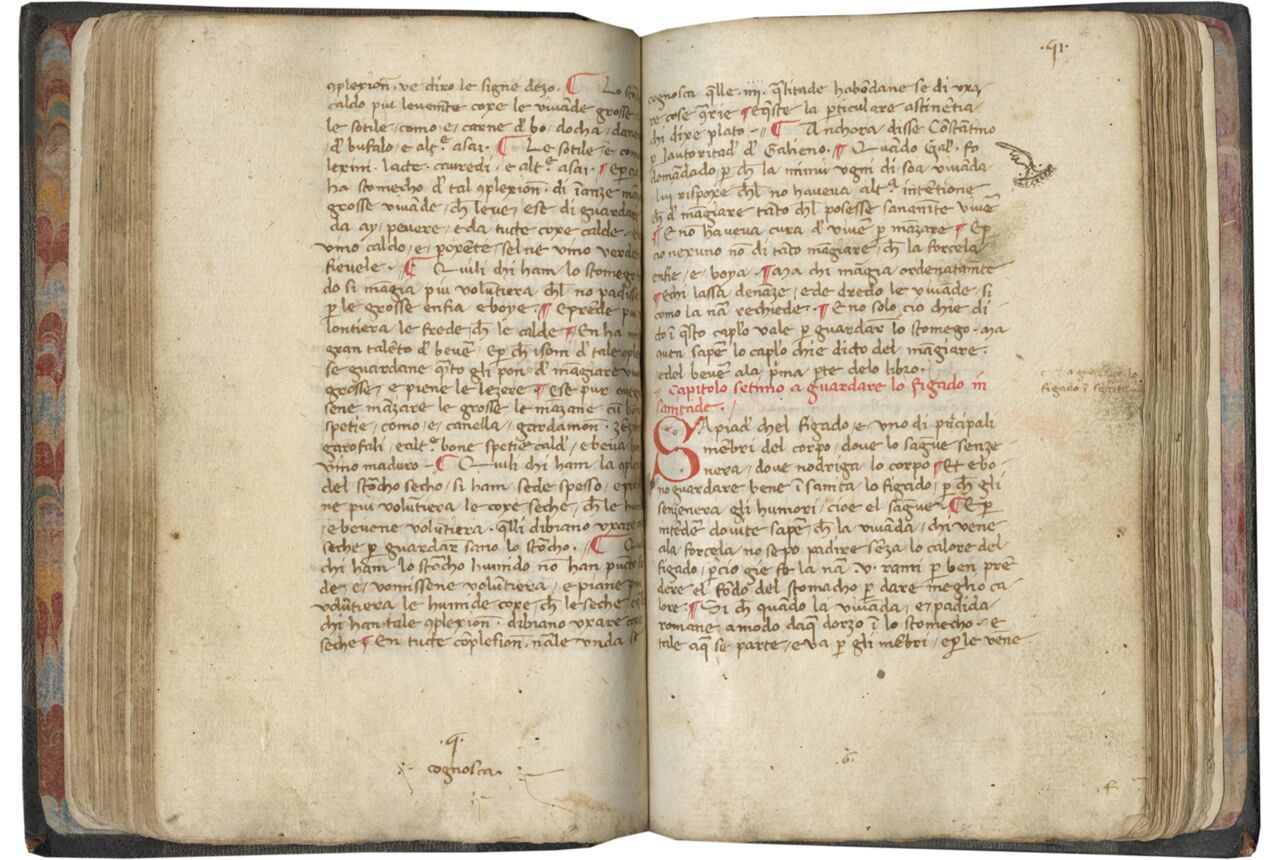 ꝯplexion̄. ve diro le signe dezo. ¶ Lo sto
caldo piu levem̄te coxe le vivāde grosse
le sotile, como, e, carne d' bo, docha, dane
d' bufalo, e alt̾ asai. ¶ Le sotile, e, com
lexini. lacte. cavredi. e alt̾ asai. ¶ E p̱ cio
ha stomecho d' tal ꝯplexion̄. di īanze mā
grosse vivāde, ch̄ leve, ese di guardare
da ay, pevere, e da tucte coxe calde, e
vino caldo, e, poxente, sel ne vino verde
fievele. ¶ Quili chi ham lo stomego
do si māgia piu volūtiera ch̄l no padisse
p̱ le grosse enfia e boye. ¶ E prēde piu
lontiera le frede, ch̄ le calde ¶ En ha
gran talēto d' beve᷑, e p̱ ch̄ isom d' tale ꝯple
se guardane q̄to gli pon d' māgiare viv
grosse, e piene le lezere ¶ Ese pur
sene māzare le grosse le māzane cū bon
spetie, como, e, canella, gardamon. zēz
garofali, e alt̾ bone spetie cald', e beva
vino maduro. ¶ Quili chi ham la ꝯple
del stōcho secho, si ham sede spesso, e prē
ne piu volūtiera le coxe seche, ch̄ le hu
e bevene volūtiera. q̄lli dibiano vxare
seche p̱ guardar̄ sano lo stōcho. ¶ Qui
chi ham lo stōcho humido no han puncto
de, e, vomissene volūtiera, e piane piu
volūtiera le humide coxe, ch̄ le seche, e
chi han tale ꝯplexion̄. dibiano vxare coxe
seche ¶ En tucte cōplesion̄. nāle vnda se
cognosca
.91.
cognosca q̄lle .iiii. q̄litade habōdane se di vxa
re cose ꝯt̄rie ¶ E q̄ste la p̱ticulare astinētia
chi dixe plato ¶ Anchora disse Cōstātino
p̱ lautoritad' d' Galieno. ¶ Quādo Gal'. fo
domādado, p̱ ch̄ la minui vgni di soa vivāda
lui rispoxe ch̄l no haveva alt̾ intētione
ch̄ d' māgiare tāto ch̄l posesse sanam̄te vive᷑
¶ E no haveva cura d' vive᷑ p̱ māzare ¶ E p̱
cio nexuno no di tāto māgiare, ch̄ la forcela
enfie, e, boya. ¶ Ma chi māgia ordenatam̄te
¶ E chi lassa denāze, e de dredo le vivāde, si
como la nā rechiede. ¶ E no solo cio chie di
to ī q̄sto cap̱lo vale p̱ guardar̄ lo stomego, ma
anchora sape᷑ lo cap̱lo chie dicto del māgiare.
e del beve᷑ ala p̱ma p̱te delo libro.
Capitolo setimo a guardare lo figado in
sanitade.
Sapiad' chel figado, e, vno di p̱ncipali
mēbri del corpo, dove lo sāgue senze
nera, dove nodriga lo corpo ¶ Et e bo
no guardare bene ī sanita lo figado, p̱ ch̄ gli
senzenera gli humori, cioe el sangue ¶ E p̱
intēder̄ dovite sape᷑ ch̄ la vivāda, chi vene
ala forcela no se po padire sēza lo calore del
figado, p̱cio gie fe la nā .v. rami p̱ ben prē
dere el fōdo del stomacho p̱ dare meglio ca
lore. ¶ Si ch̄ quādo la vivāda, e, padida
romane a modo daq̄ dorzo ī lo stomecho, e
tale aq̄ se parte, e va p̱ gli mēbri, e p̱ le vene
figado ī sanita